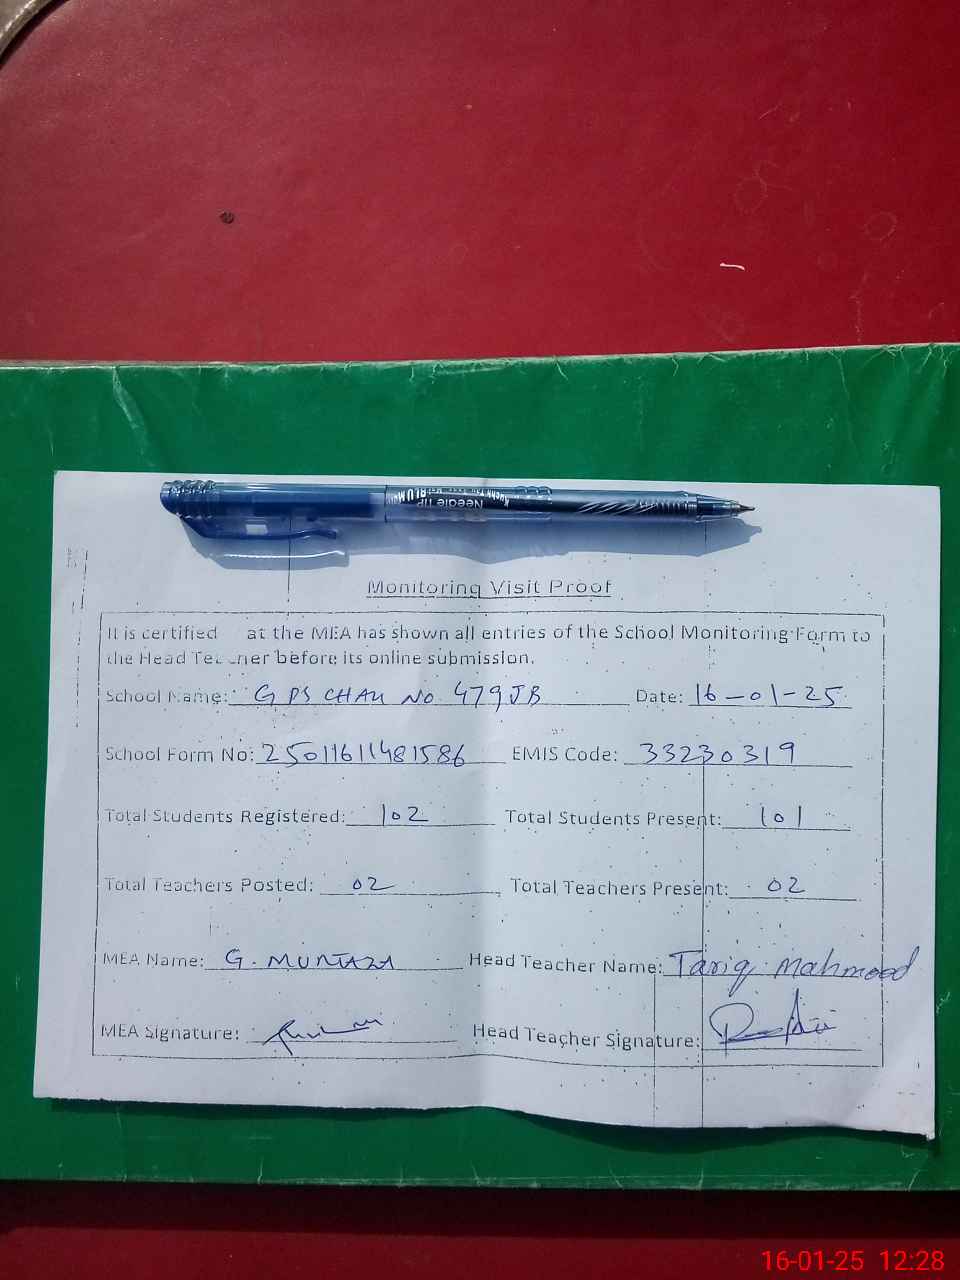 Needle TIP
Monitoring Visit Proof
It is certified at the MEA has shown all entries of the School Monitoring Form to
the Head Teacher before its online submission.
School Name: G PS CHAK NO. 479 JB Date: 16-01-25
School Form No: 25011611481586 EMIS Code: 33230319
Total Students Registered: 102 Total Students Present: 101
Total Teachers Posted: 02 Total Teachers Present: 02
MEA Name: G. MURTAZA Head Teacher Name: Tariq Mahmood
MEA Signature: Head Teacher Signature:
16-01-25 12:28